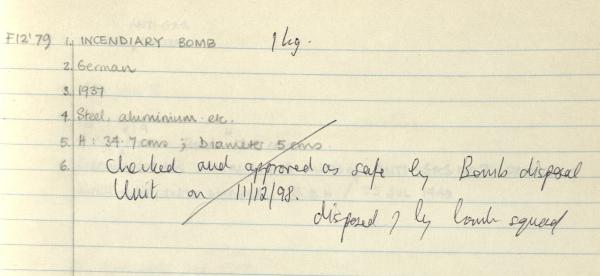 F12'79 1. INCENDIARY BOMB 1 kg.
2. German
3. 1937
4. Steel, aluminium etc.
5. H: 34.7 cms ; Diameter 5 cms
6. Checked and approved as safe by Bomb disposal
Unit on 11/12/98.
disposed of by bomb squad